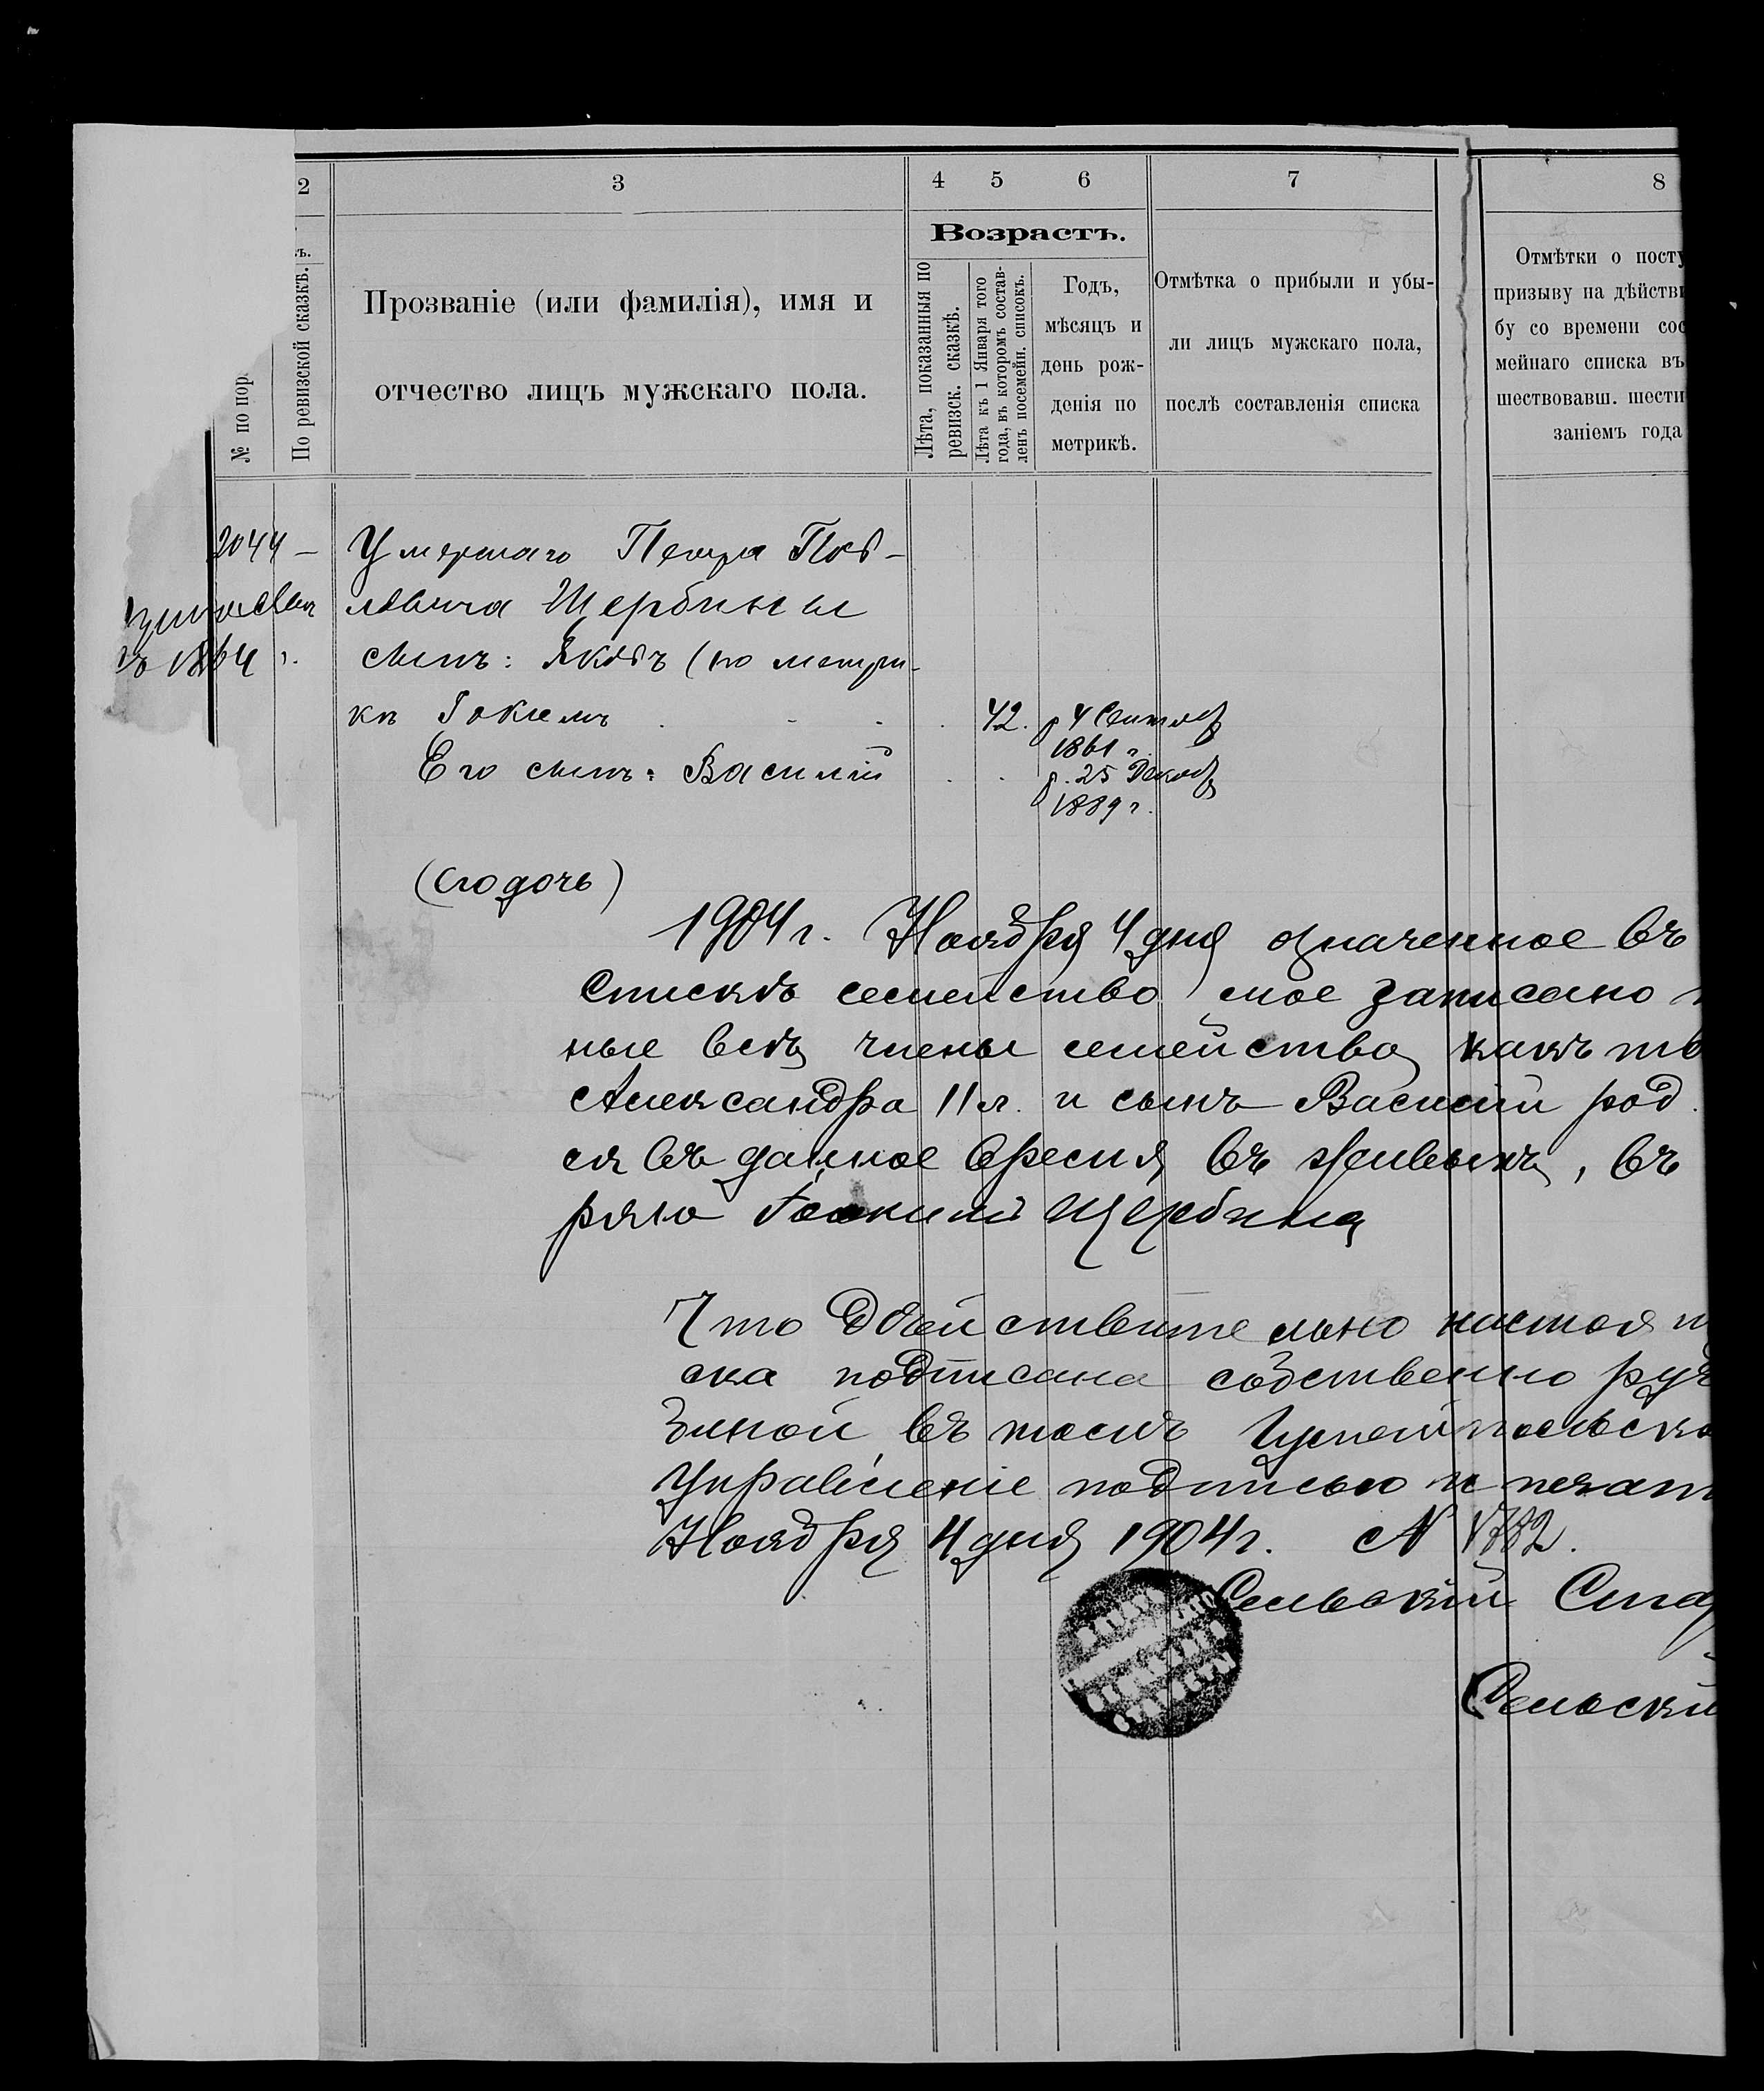 2 3 4 5 6 7 8
Возрастъ.
№ по пор
По ревизской сказкѣ.
Прозваніе (или фамилія), имя и
отчество лицъ мужскаго пола.
Лѣта, показанныя по
ревизск. сказкѣ.
Лѣта къ 1 Января того
года, въ которомъ состав-
ленъ посемейн. списокъ.
Годъ,
мѣсяцъ и
день рож-
денія по
метрикѣ.
Отмѣтка о прибыли и убы-
ли лицъ мужскаго пола,
послѣ составленія списка
Отмѣтки о посту
призыву на дѣйстви
бу со времени сос
мейнаго списка въ
шествовавш. шести
заніемъ года
2044 — Умершаго Петра Пав-
ловича Щербины
1864 г. сынъ: Яковъ (по метри-
кѣ Іокимъ 42. р 4 Сентяб
1861 г.
Его сынъ: Василій р. 25 Декаб
1889 г.
(его дочь)
1904 г. Ноября 4 дня означенное въ
спискѣ семейство мое записано
ные всѣ члены семейства какъ то
Александра 11 л. и сынъ Василій род.
ся въ данное время въ живыхъ, въ
ряю Іоакимъ Щербина
Что дѣйствительно настоя
ска подписана собственно руч
биной въ томъ сельско
Управленіе подписью и печат
Ноября 4 дня 1904 г. N 1782.
Сельскій Ста
Сельскі